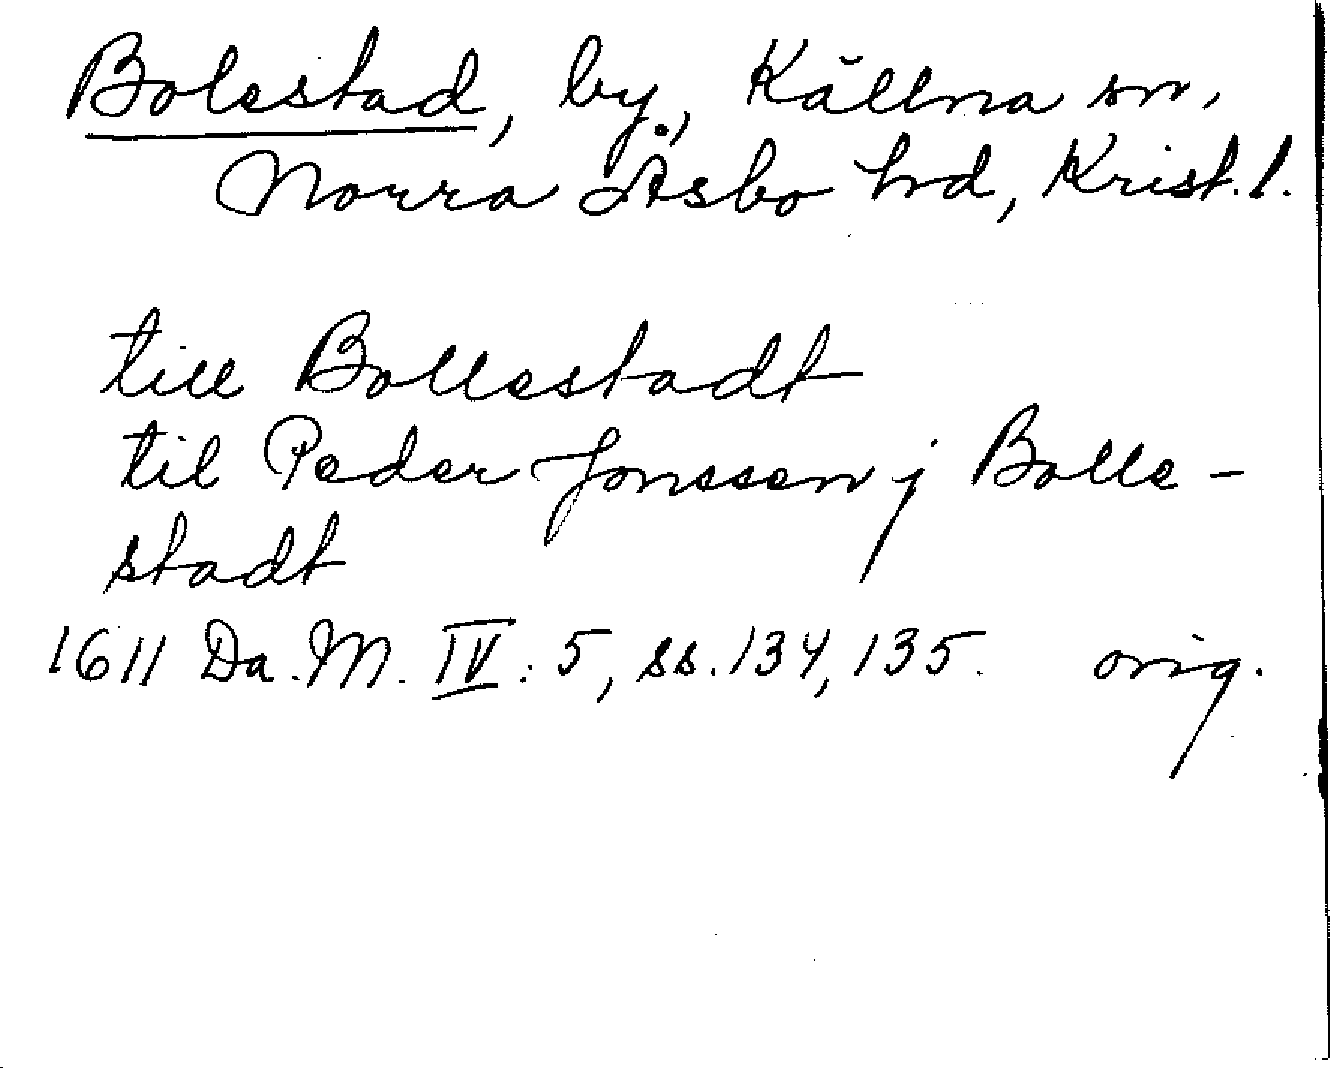 Bolestad, by, Källna sn,
Norra Åsbo hd, Krist. l.
till Bollestadt
til Peder Jonssen j Bolle-
stadt
1611 Da. M. IV: 5, ss. 134, 135. orig.